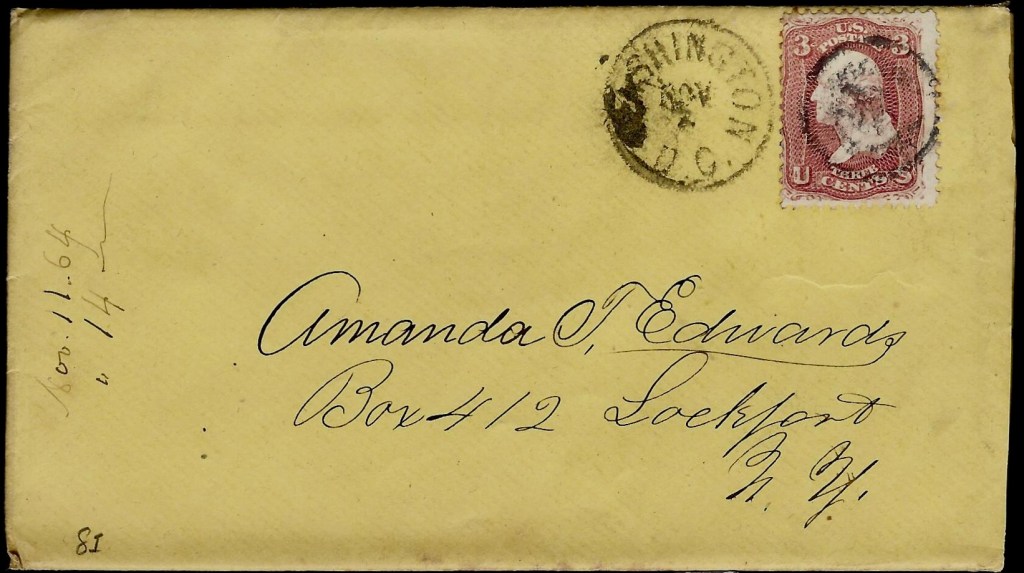 WASHINGTON
NOV
D.C.
3 U.S. 3
POSTAGE
THREE
U CENTS S
Amanda T. Edwards
Box 412 Lockport
N. Y.
Nov. 11. 64
" 14
81